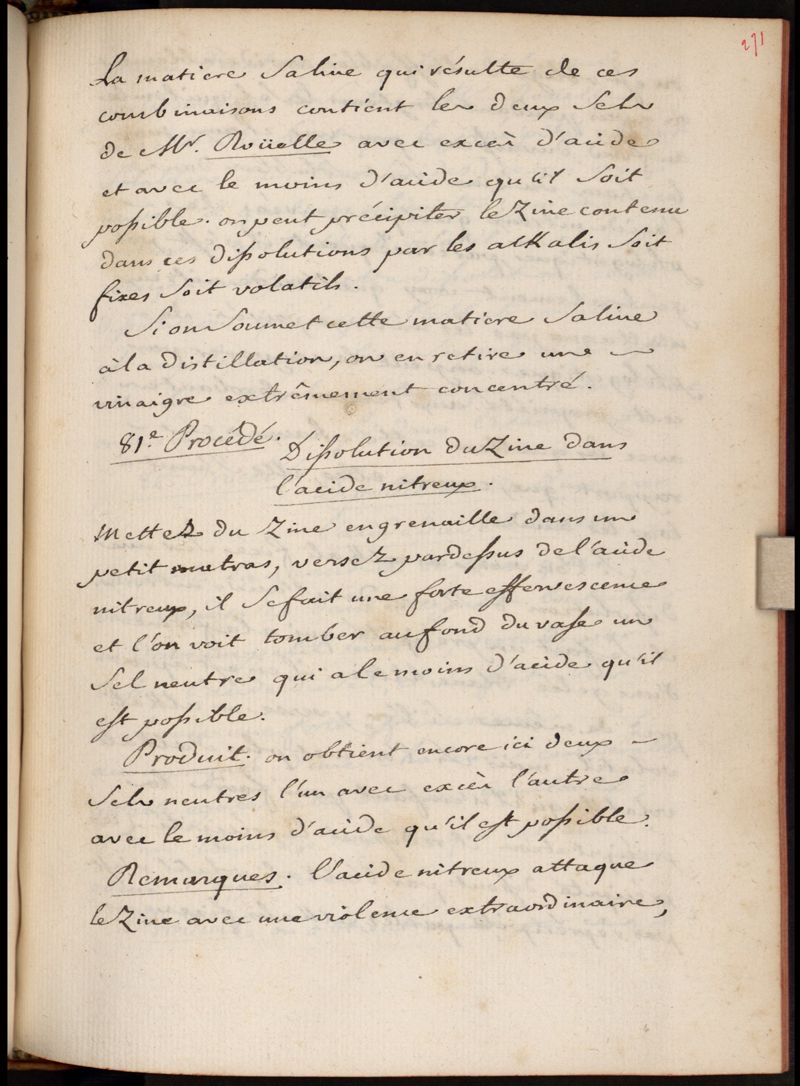 271
La matiere Saline qui résulte de ces
combinaisons contient les deux Sels
de Mr. Roüelle avec excès d'acide
et avec le moins d'acide qu'il Soit
possible. on peut précipiter le Zinc contenu
dans ces dissolutions par les alkalis Soit
fixes Soit volatils.
Si on Soumet cette matiere Saline
à la distillation, on en retire une
vinaigre extrêmement concentré.
81e. Procédé. Dissolution du Zinc dans
l'acide nitreux.
Mettez du Zinc en grenaille dans un
petit matras, versez pardessus de l'acide
nitreux, il Se fait une forte effervescence
et l'on voit tomber au fond du vase un
Sel neutre qui a le moins d'acide qu'il
est possible.
Produit. on obtient encore ici deux
Sels neutres l'un avec excès l'autre
avec le moins d'acide qu'il est possible.
Remarques. L'acide nitreux attaque
le Zinc avec une violence extraordinaire,